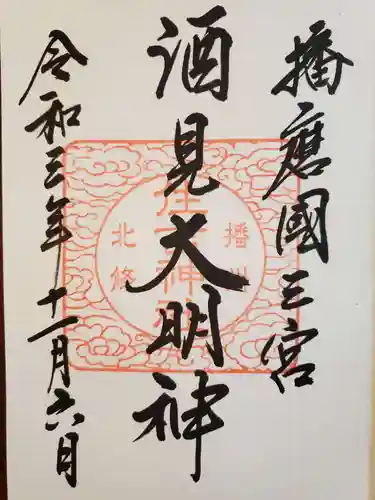 播磨國三宮
酒見大明神
令和三年十一月六日
住吉神社
播州
北條